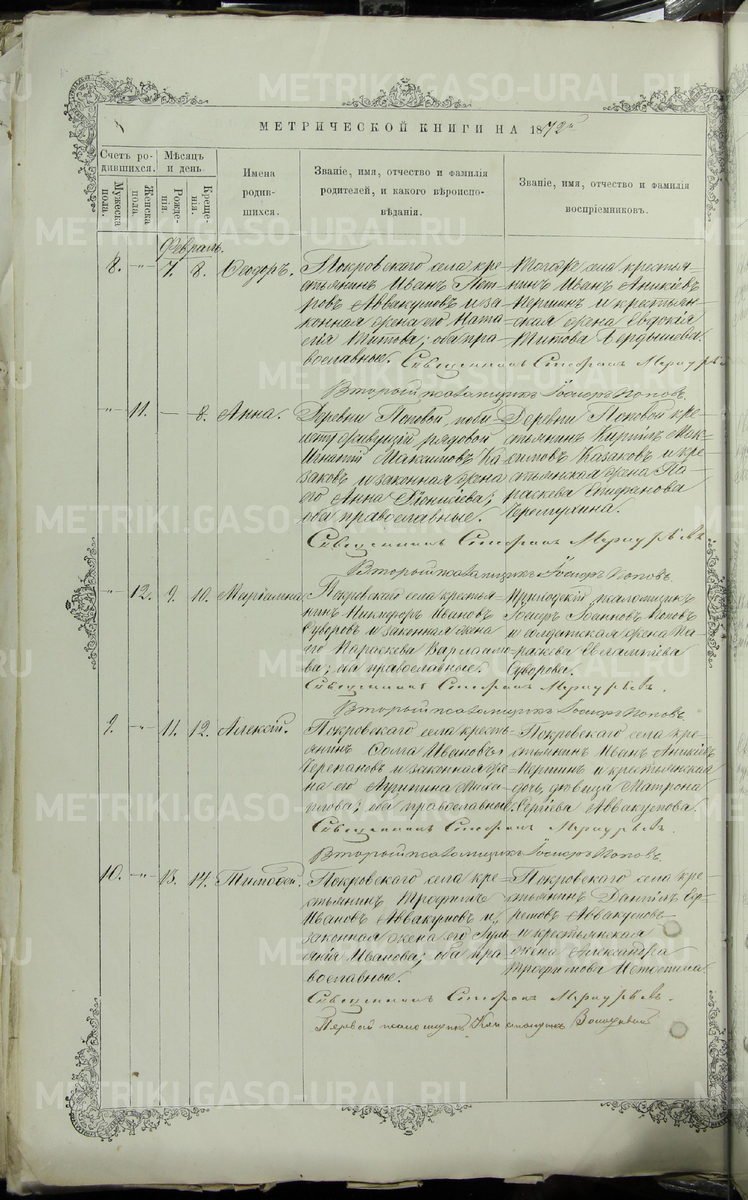 МЕТРИЧЕСКОЙ КНИГИ НА 1872
Счетъ родившихся.
Мужеска пола.
Женска пола.
Мѣсяцъ и день
Рожденія.
Крещенія.
Имена родившихся.
Званіе, имя, отчество и фамилія родителей, и какого вѣроисповѣданія.
Званіе, имя, отчество и фамилія воспріемниковъ.
Февраль.
8. -"- 7. 8. Ѳеодоръ.
Покровскаго села кре-
стьянинъ Иванъ Пет-
ровъ Аввакумовъ и за-
конная жена его Ната-
лія Титова; оба пра-
вославные.
Тогоже села крестья-
нинъ Иванъ Аникіевъ
Першинъ и крестьян-
ская жена Евдокія
Титова Бердышева.
Священникъ Стефанъ
Второй псаломщикъ Іосифъ Поповъ.
" 11. — 8. Анна.
Деревни Поповой
рядовой
Максимовъ Ка-
заковъ и законная жена
его Анна
оба православные.
Деревни Поповой кре-
стьянинъ Кирилъ Мак-
симовъ Казаковъ и кре-
стьянская жена Па-
раскева Стефанова
Черемухина.
Священникъ Стефанъ
Второй псаломщикъ Іосифъ Поповъ.
" 12. 9. 10. Маріамна.
Покровскаго села крестья-
нинъ Никифоръ Ивановъ
Суворовъ и законная жена
его Параскева Варлаамо-
ва; оба православные.
псаломщикъ
Іосифъ Іоанновъ Поповъ
и солдатская жена Па-
раскева Евлампіева
Суворова.
Священникъ Стефанъ
Второй псаломщикъ Іосифъ Поповъ.
9. -"- 11. 12. Алексій.
Покровскаго села кресть-
янинъ Савва Ивановъ
Черепановъ и законная же-
на его Агрипина Миха-
йлова; оба православные.
Покровскаго села кре-
стьянинъ Иванъ Аникіевъ
Першинъ и крестьянская
дочь, дѣвица Матрона
Сергіева Аввакумова.
Священникъ Стефанъ
Второй псаломщикъ Іосифъ Поповъ.
10. -"- 13. 14. Тимоѳей.
Покровскаго села кре-
стьянинъ Трофимъ
Ивановъ Аввакумовъ и
законная жена его Іули-
анія Иванова; оба пра-
вославные.
Покровскаго села кре-
стьянинъ Даніилъ Еф-
ремовъ Аввакумовъ
и крестьянская
жена Александра
Трофимова
Священникъ Стефанъ
Первый псаломщикъ
METRIKI.GASO-URAL.RU